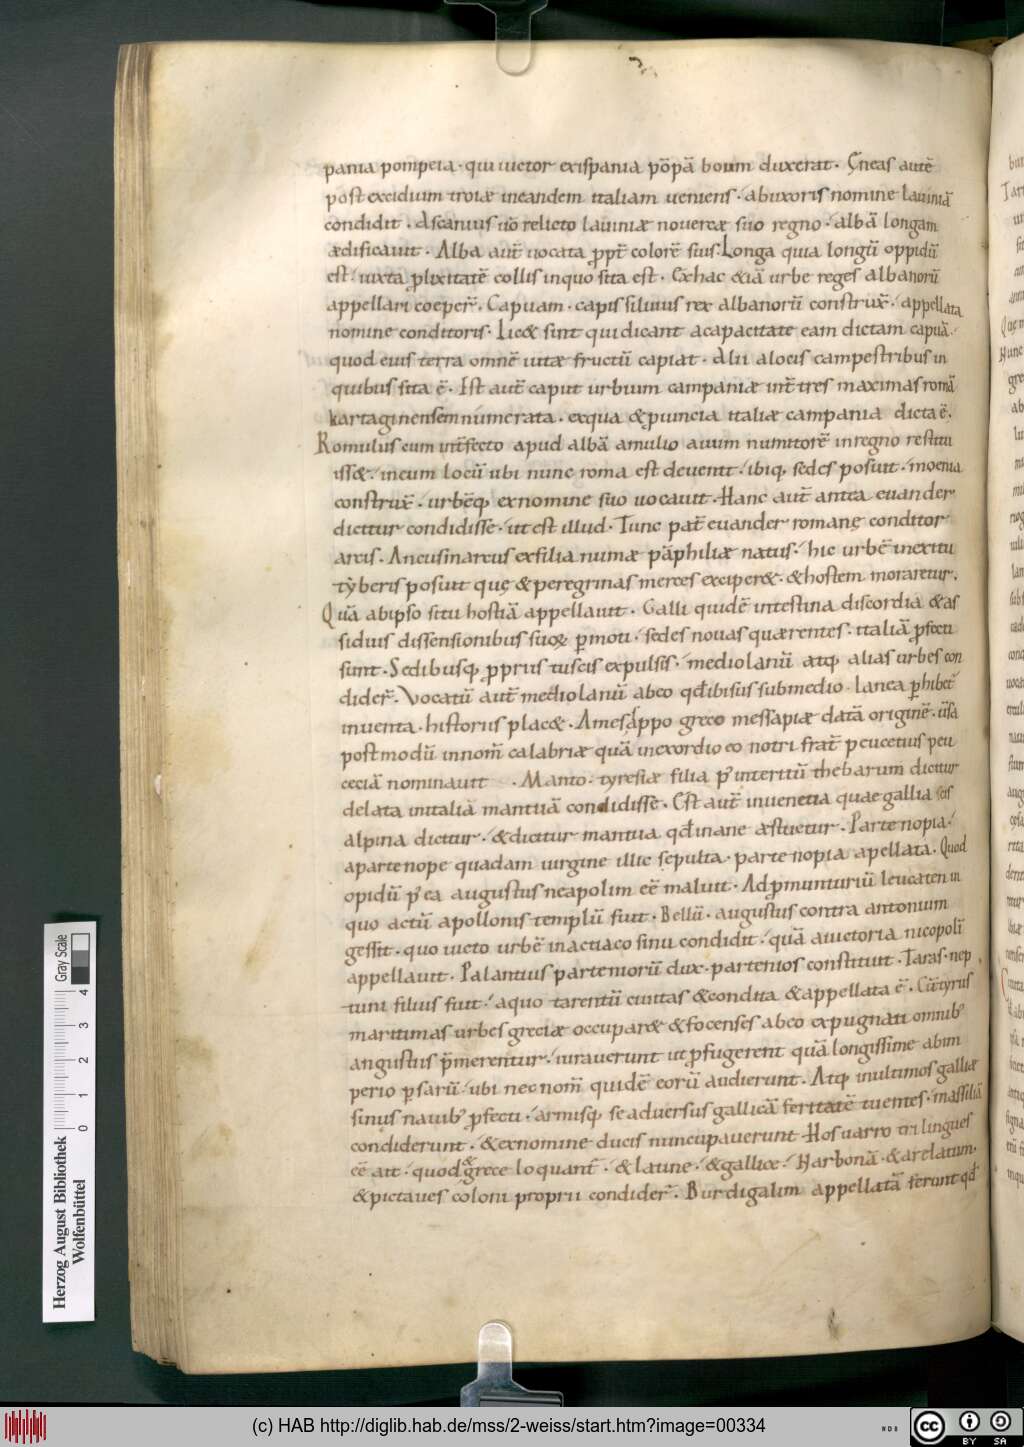 pania pompeia · qui uictor exispania põpã boum duxerat · Ęneas autẽ
post excidium troiæ ineandem italiam ueniens · abuxoris nomine lauiniã
condidit · Ascanius ũo relicto lauiniæ nouercæ suo regno · albã longam
ædificauit · Alba aut̃ uocata ꝓpt̃ colorẽ suis · Longa quia longũ oppidũ
est · iuxta ꝓlixitatẽ collis inquo sita est · Exhac &iã urbe reges albanorũ
appellari coeper̃ · Capuam · capis siluius rex albanorũ construx̃ · appellata
nomine conditoris · Lic& sint qui dicant acapacitate eam dictam capuã ·
quod eius terra omnẽ uitæ fructũ capiat · Alii alocis campestribus in
quibus sita ẽ · Est aut̃ caput urbium campaniæ int̃ tres maximas romã
kartaginensem numerata · exqua &ꝓuincia italiæ campania dicta ẽ ·
Romulus cum int̃fecto apud albã amulio auum numitorẽ inregno restitu
iss& · ineum locũ ubi nunc roma est deuenit · ibiq; sedes posuit · moenia
construx̃ · urbẽq; exnomine suo uocauit · Hanc aut̃ antea euander
dicitur condidisse · ut est illud · Tunc pat̃ euander romanę conditor
arcis · Ancusmarcus exfilia numæ pãphiliæ natus · hic urbẽ inexitu
tyberis posuit quę &peregrinas merces exciper& · &hostem moraretur ·
Quã abipso situ hostiã appellauit · Galli quidẽ intestina discordia &as
siduis dissensionibus suoꝝ ꝑmoti · sedes nouas quærentes · italiã ꝓfecti
sunt · Sedibusq; ꝓpriis tuscis expulsis · mediolanũ atq; alias urbes con
dider̃ · Vocatũ aut̃ mediolanũ abeo qđ ibisus submedio lanea ꝑhibet̃
inuenta · historiis plac& · Amesappo greco messapiæ datã originẽ · ũsã
postmodũ innom̃ calabriæ quã inexordio eo notri frat̃ peucetius peu
ceciã nominauit · Manto · tyresiæ filia p̃ interitũ thebarum dicitur
delata initaliã mantuã condidisse · Est aut̃ inuenetia quae gallia scis
alpina dicitur · &dicitur mantua qđ inane æstuetur · Parte nopia ·
aparte nope quadam uirgine illic sepulta · parte nopia apellata · Quod
opidũ p̃ ea augustus neapolim eẽ maluit · Adꝓmunturiũ leucaten in
quo actũ apollonis templũ fuit · Bellũ · augustus contra antonium
gessit · quo uicto urbẽ inactiaco sinu condidit · quã auictoria nicopoli
appellauit · Palantius parteniorũ dux · partenios constituit · Taras · nep
tuni filius fuit · aquo tarentũ ciuitas &condita &appellata ẽ · Cũ tyrus
maritimas urbes greciæ occupar& &focenses abeo expugnati omnib;
angustus p̃merentur · iurauerunt ut ꝓfugerent quã longissime abim
perio ꝑsarũ · ubi nec nom̃ quidẽ eorũ audierunt · Atq; inultimos galliæ
sinus nauib; ꝓfecti · armisq; se aduersus gallicã feritatẽ tuentes · massiliã
condiderunt · &exnomine ducis nuncupauerunt Hos uarro trilingues
eẽ ait · quod &grece loquant̃ · &latine · &gallice · Narbonã · &arelatum ·
&pictaues coloni proprii condider̃ · Burdigalim appellatã ferunt qđ
Herzog August Bibliothek
Wolfenbüttel
0 1 2 3 4
Gray Scale
(c) HAB http://diglib.hab.de/mss/2-weiss/start.htm?image=00334
cc BY SA